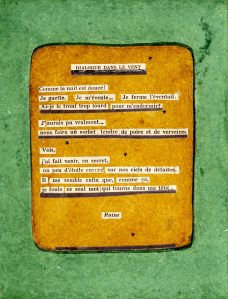 DIALOGUE DANS LE VENT
Comme la nuit est douce!
Je guette. Je m'évente... Je ferme l'éventail.
Ai-je le front trop lourd pour m'endormir?
J'aurais pu vraiment...
nous faire un sorbet tendre de poire et de verveine.
Vois,
j'ai fait venir, en secret,
un peu d'étoile encore sur nos ciels de défaites.
Il me semble enfin que, comme ça,
je foule ce seul mot qui tourne dans ma tête.
Raine